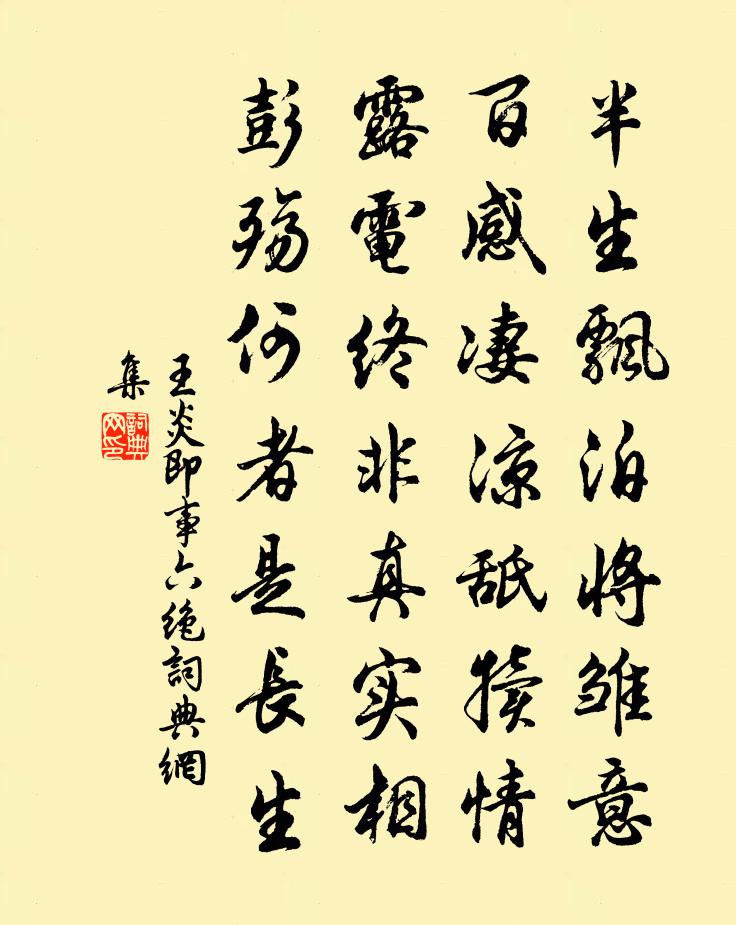 半生飄泊將雛意
百感凄涼舐犢情
露電終非真实相
彭殤何者是長生
王炎即事六絶詞典網
集
詞典
网印